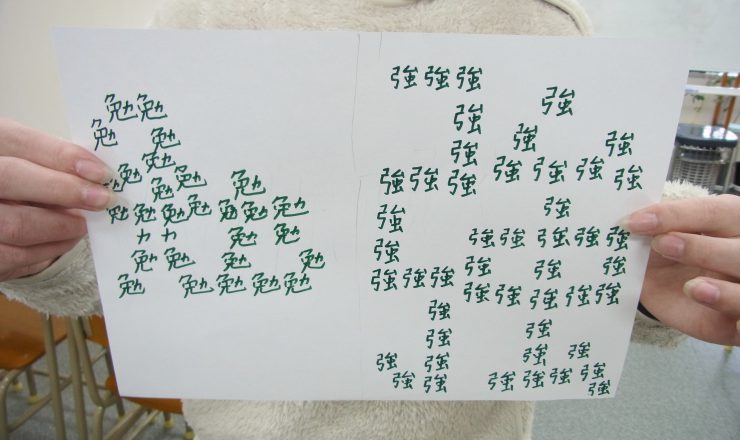 勉勉
勉 勉
勉
勉 勉 勉 勉
勉 勉 勉 勉 勉 勉 勉
カ カ 勉 勉
勉 勉 勉 勉
勉 勉 勉 勉 勉
強 強 強
強 強
強 強 強
強 強 強 強 強 強 強
強 強
強 強 強 強 強 強
強 強 強
強 強 強 強 強 強 強 強
強
強 強
強 強 強 強
強 強 強 強 強 強
強